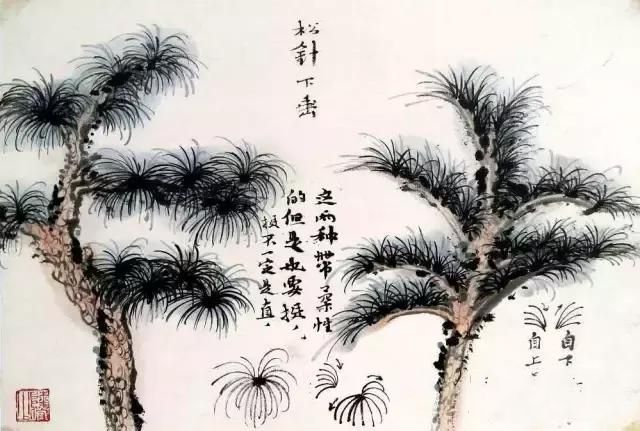 松針下垂
这两种帶柔性
的但是也要挺,
挺不一定是直,
自下
自上